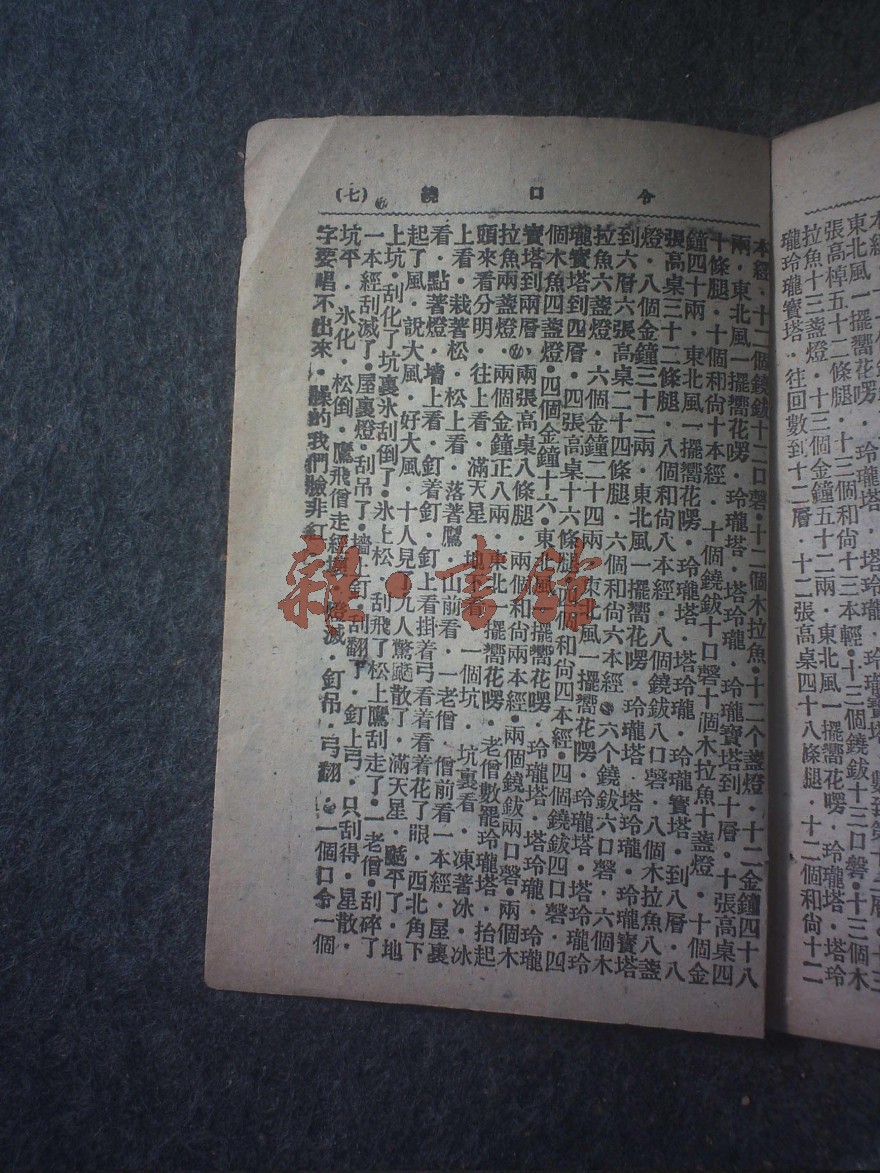 令口繞 (七)
張高棹五十二條腿．十三個和尙十三本輕．十三個鐃鈸十三口磬．十三個木
拉魚十三盞燈．十三個金鐘五十二兩．東北風一擺嚮花愣．玲瓏塔．塔玲
瓏玲瓏寶塔．往回數到十二層．十二張高桌四十八條腿．十二個和尙十二
本經．十二個鐃鈸十二口磬．十二個木拉魚．十二个盞燈．十二金鐘四十八
兩．東北風一擺嚮花愣．玲瓏塔．塔玲瓏．玲瓏寶塔到十層．十張高桌四
十條腿．十個和尙十本經．十個鐃鈸十口磬十個木拉魚十盞燈．十個金
鐘四十兩．東北風一擺嚮花愣．玲瓏塔．塔玲瓏．玲瓏寶塔．到八層．八
張高桌三十二條腿．八個和尙八本經．八個鐃鈸八口磬．八個木拉魚八盞
燈．八個金鐘三十二兩．東北風一擺嚮花愣．玲瓏塔．塔玲瓏．玲瓏寶塔
到六層六張高桌二十四條腿．六個和尙六本經．六个鐃鈸六口磬．六個木
拉魚六盞燈．六個金鐘二十四兩．東北風一擺嚮花愣．玲瓏塔．塔玲瓏玲
瓏寶塔到四層．四張高桌十六條腿．四個和尙四本經．四個鐃鈸四口磬．四
個木魚四盞燈．四個金鐘十六．東北風一擺嚮花愣．玲瓏塔．塔玲瓏．玲瓏
寶塔到兩層．兩張高桌八條腿．兩個和尙兩本經．兩個鐃鈸兩口磬．兩個木
拉魚兩盞燈．兩個金鐘正八兩．東北一擺嚮花愣．老僧數罷玲瓏塔．抬起
頭來看分明．往上看．滿天星．地下看．一個坑．坑裏看．凍著冰．冰
上看．栽著松．松上看．落著鷹．山前看．一老僧．僧前看一本經．屋裏
看．點著燈．墻上看．釘着釘．釘上看掛着弓看着看着花了眼．西北角下
起了風．說大風．好大風．十人見了九人驚颳散了．滿天星．颳平了．地
上坑．刮化了坑裏氷刮倒了．氷上松．刮飛了松上鷹刮走了．一老僧．刮碎了
一本經刮滅了．屋裏燈．刮吊了．墻上釘．刮翻了．釘上弓．只刮得．星散．
坑平．氷化．松倒．鷹飛僧走經壞．燈滅．釘吊．弓翻．一個口令一個
字要唱不出來．臊的我們臉非紅
雜·書館